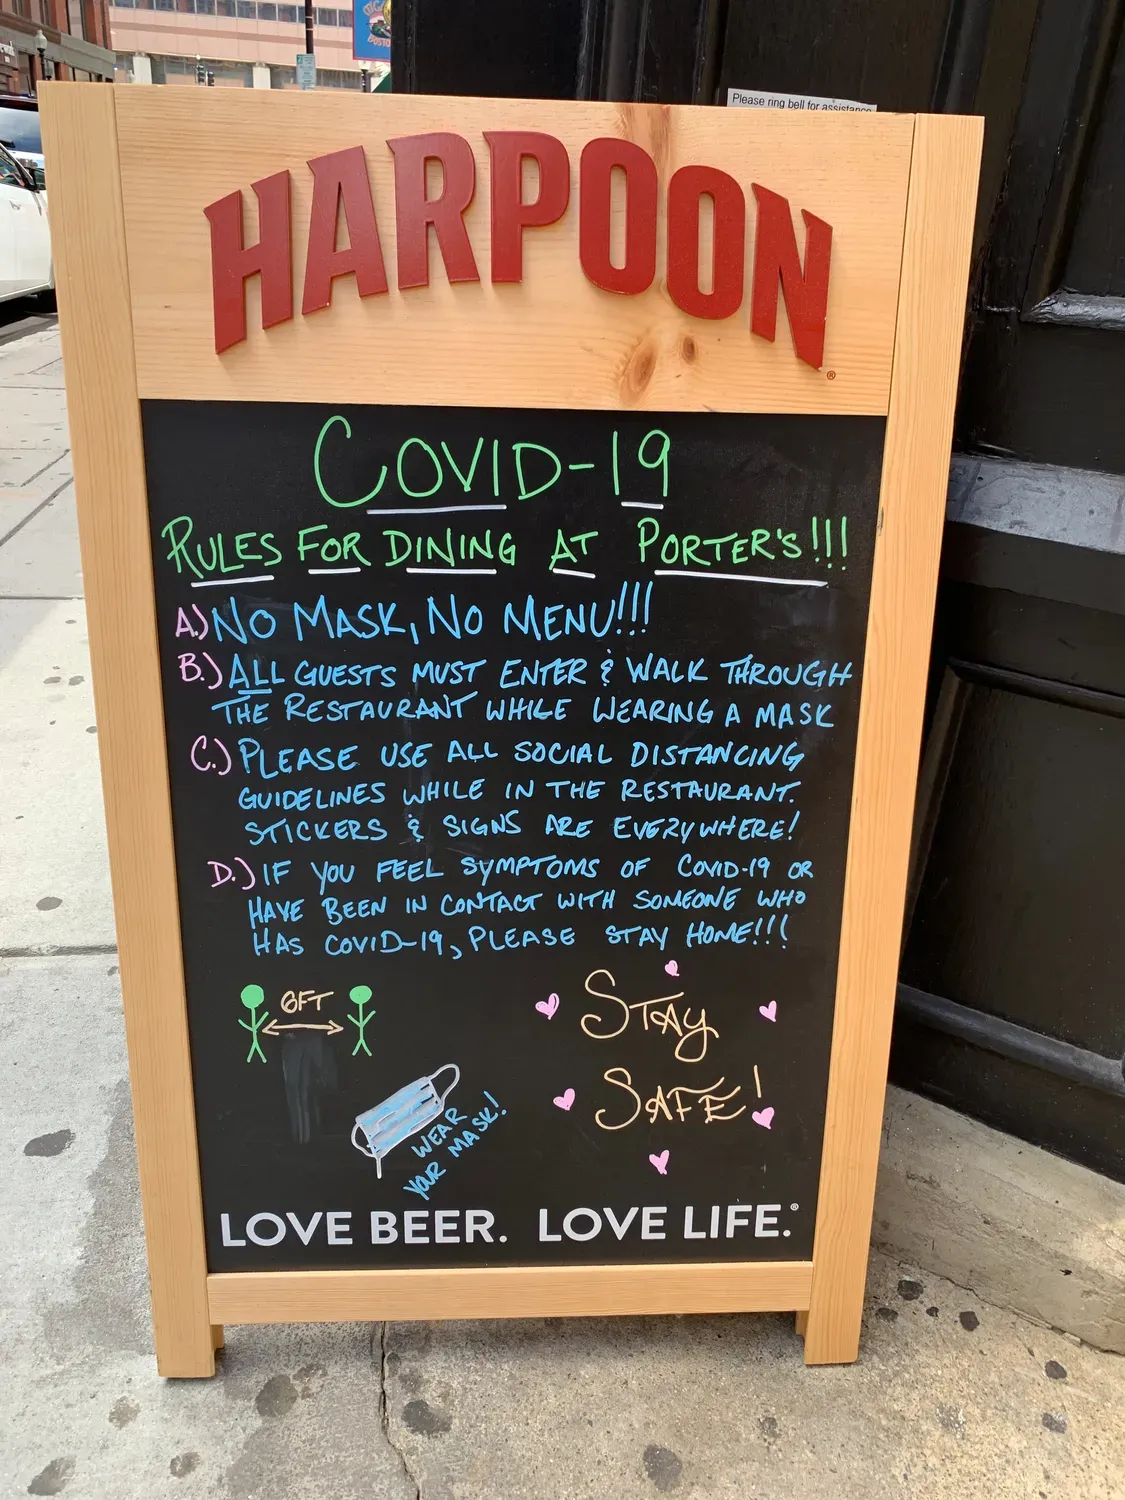 Please ring bell for assistance
HARPOON®
COVID-19
RULES FOR DINING AT PORTER'S!!!
A.) NO MASK, NO MENU!!!
B.) ALL GUESTS MUST ENTER & WALK THROUGH
THE RESTAURANT WHILE WEARING A MASK
C.) PLEASE USE ALL SOCIAL DISTANCING
GUIDELINES WHILE IN THE RESTAURANT.
STICKERS & SIGNS ARE EVERYWHERE!
D.) IF YOU FEEL SYMPTOMS OF COVID-19 OR
HAVE BEEN IN CONTACT WITH SOMEONE WHO
HAS COVID-19, PLEASE STAY HOME!!!
6FT
STAY
SAFE!
WEAR
YOUR MASK!
LOVE BEER. LOVE LIFE.®